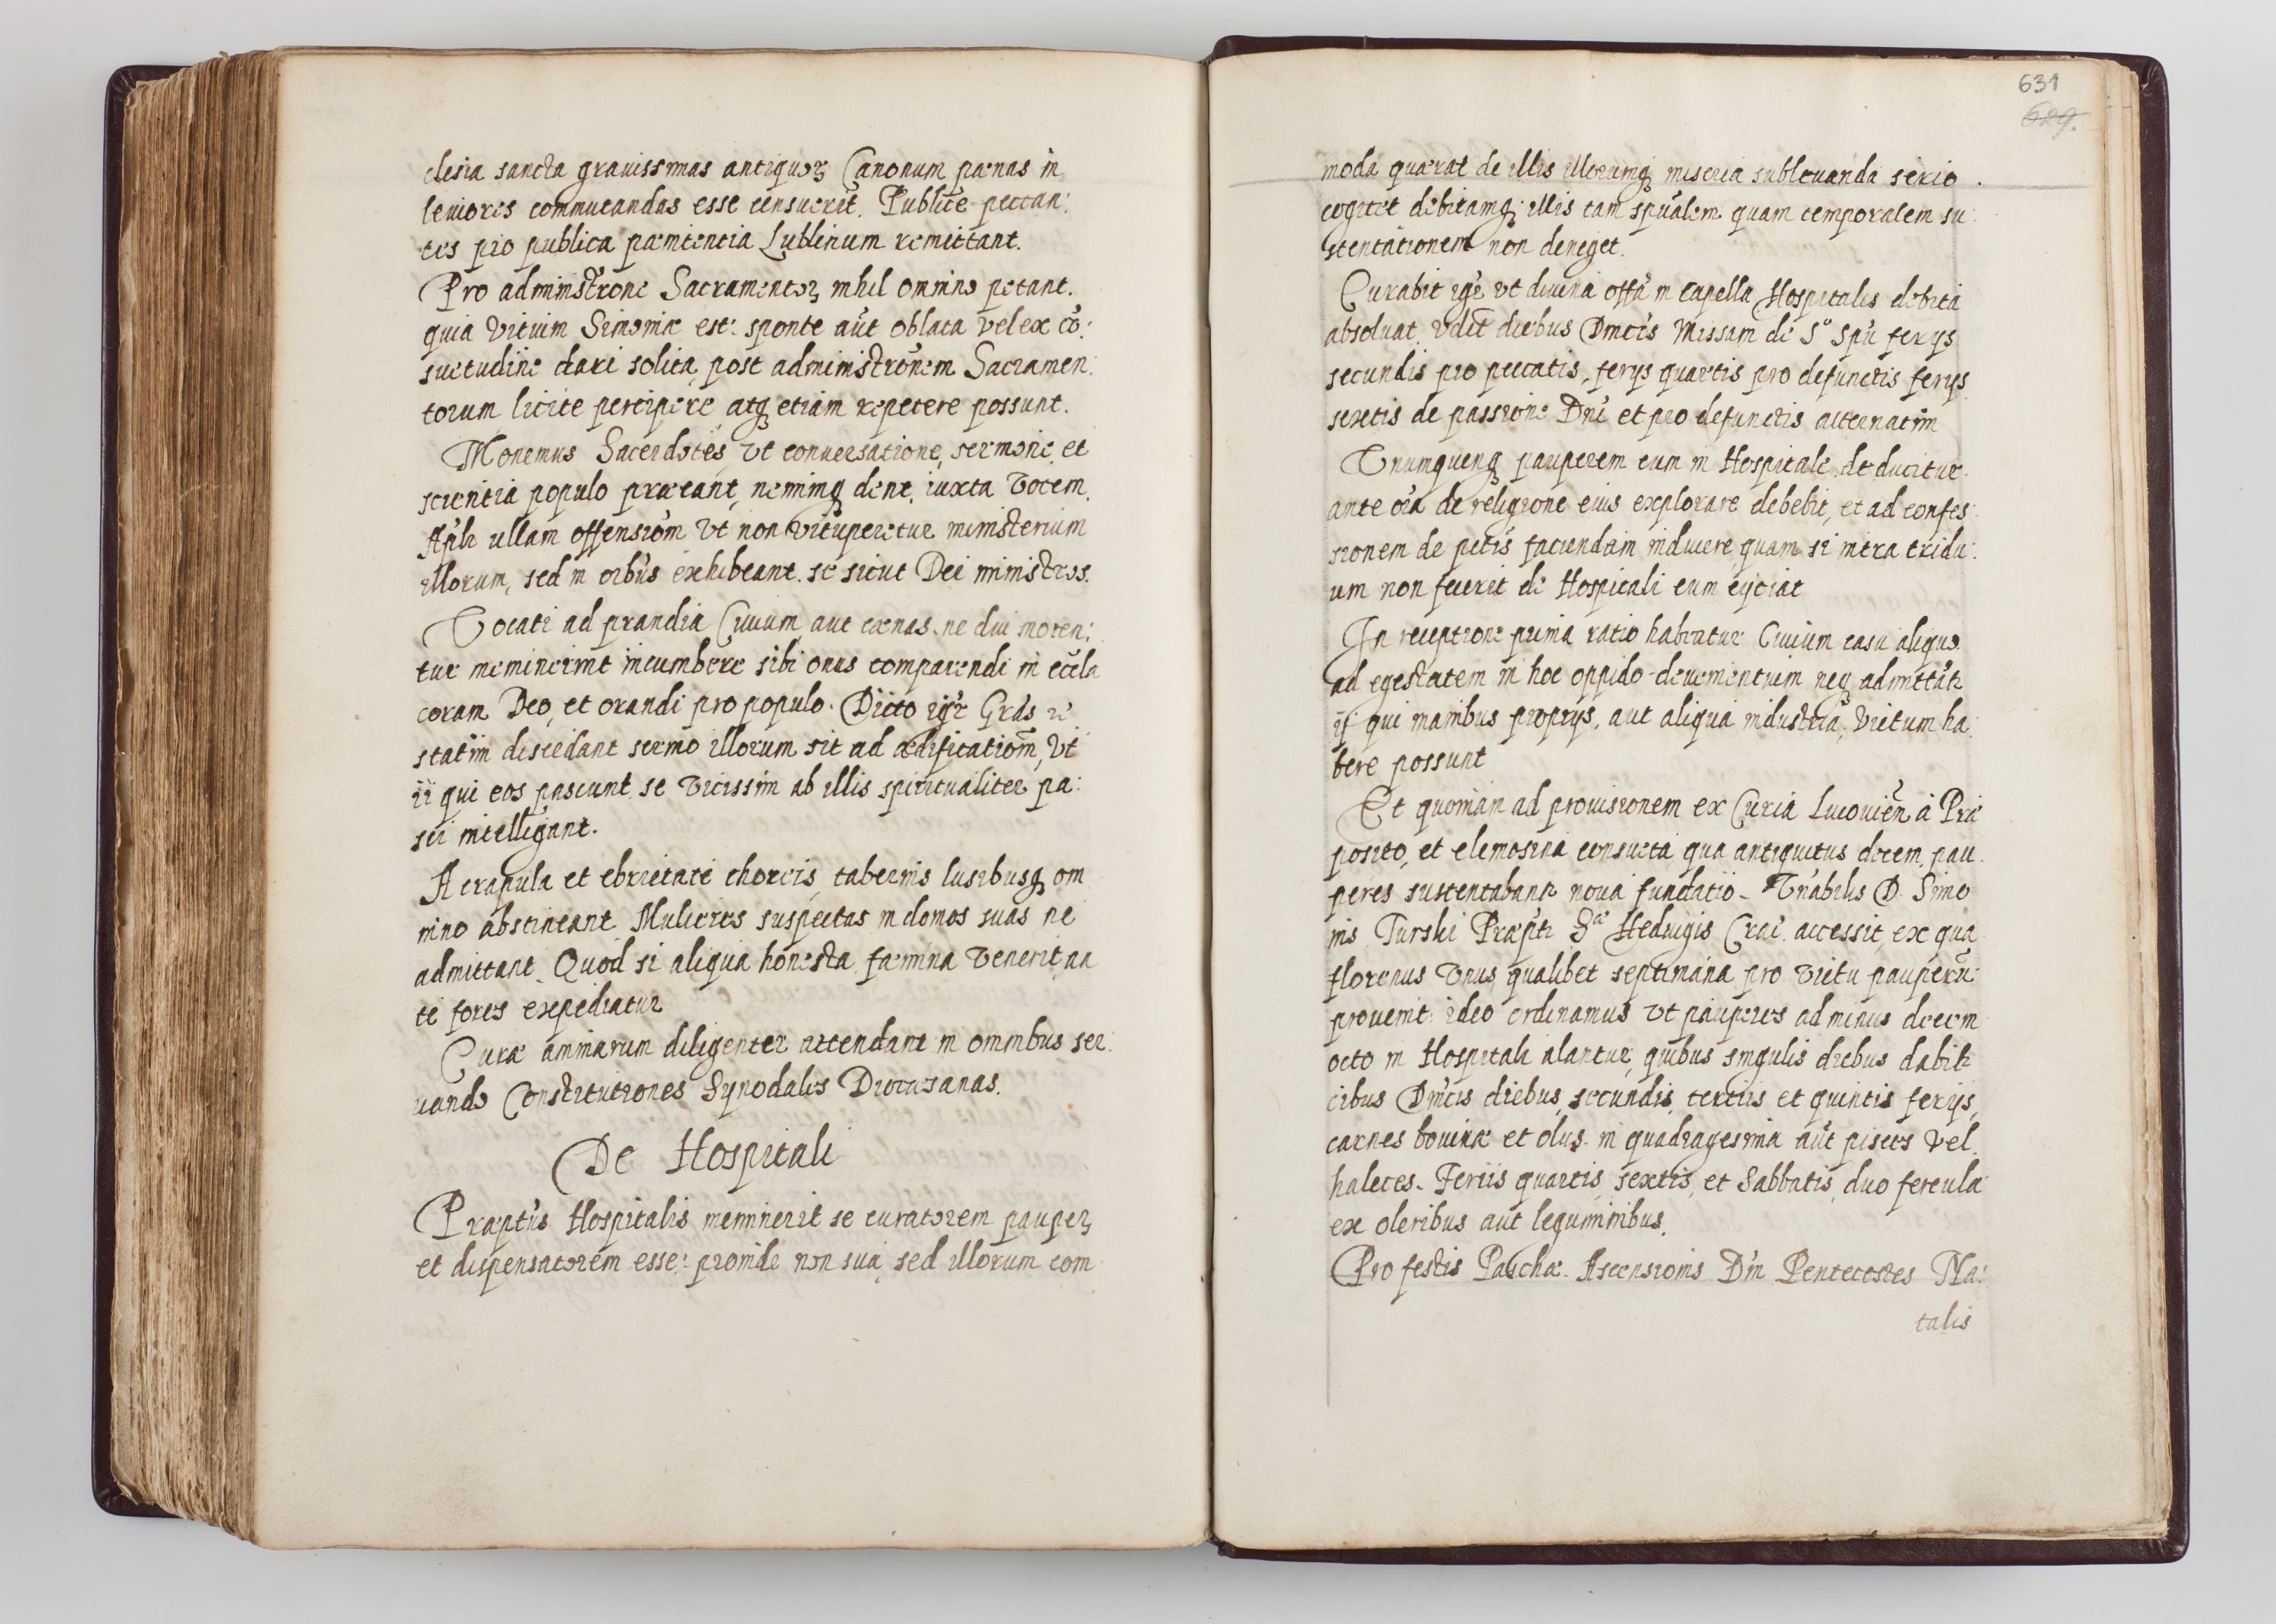 clesia sancta grauissimas antiquoꝝ Canonum pœnas in
leuiores commutandas esse censuerit. Publice peccan:
tes pro publica pœnitentia Lublinum remittant.
Pro administrone Sacramentoꝝ nihil omnino petant.
quia vitium Simoniæ est: sponte aut oblata vel ex cō:
suetudine dari solita, post administronem Sacramen:
torum licite percipere atqꝫ etiam repetere possunt.
Monemus Sacerdotes, vt conuersatione, sermone, et
scientia populo præeant, neminiqꝫ dent, iuxta vocem
Apli ullam offensiom vt non vituperetur ministerium
illorum, sed in oibus exhibeant se sicut Dei ministros.
Vocati ad prandia Ciuium, aut cœnas ne diu moren:
tur meminerint incumbere sibi onus comparendi in eccla
coram Deo, et orandi pro populo. Dicto igr Gras
statim discedant sermo illorum sit ad ædificatiom, vt
ii qui eos pascunt, se vicissim ab illis spiritualiter pa:
sci intelligant.
A crapula et ebrietate choreis, tabernis lusibusqꝫ om
nino abstineant Mulieres suspectas in domos suas ne
admittant. Quod si aliqua honesta fœmina venerit an
te fores expediatur
Curæ animarum diligenter attendant in omnibus ser:
uando Constitutiones Synodales Diocesanas.
De Hospitali
Præptus Hospitalis meminerit se curatorem paupeꝝ
et dispensatorem esse: proinde non sua, sed illorum com
631
629.
moda quærat de illis illorumqꝫ miseria subleuanda serio
cogitet debitamqꝫ illis tam spualem quam temporalem su:
stentationem non deneget.
Curabit igr vt diuina offa in capella Hospitalis debita
absoluat. vdlt diebus Dmcis Missam de So Spu ferijs
secundis pro peccatis, ferijs quartis pro defunctis ferijs
sextis de passione Dni et pro defunctis alternatim
Vnumquenqꝫ pauperem cum in Hospitale deducitur
ante oia de religione eius explorare debebit, et ad confes:
sionem de pctis faciendam inducere, quam si intra tridu:
um non fecerit de Hospitali eum eyciat
In receptione prima ratio habeatur Ciuium casu aliquo
ad egestatem in hoc oppido deuenientium neqꝫ admittatr
ij qui manibus proprijs, aut aliqua industria, victum ha
bere possunt
Et quoniam ad prouisionem ex Curia Lucouien à Præ
posito, et elemosina consueta qua antiquitus decem pau
peres sustentabantr noua fundatio Vnabilis D. Simo
nis Turski Præpti Sæ Heduigis Crac. accessit, ex qua
florenus vnus qualibet septimana pro victu pauperū
prouenit: ideo ordinamus vt pauperes ad minus decem
octo in Hospitali alantur, quibus singulis diebus dabitr
cibus Dmcis diebus, secundis, tertiis et quintis ferijs,
carnes bouinæ et olus. in quadragesima aut pisces vel
haleces. Feriis quartis, sextis, et Sabbatis, duo fercula
ex oleribus aut leguminibus.
Pro festis Paschæ Ascensionis Dni Pentecostes Na:
talis